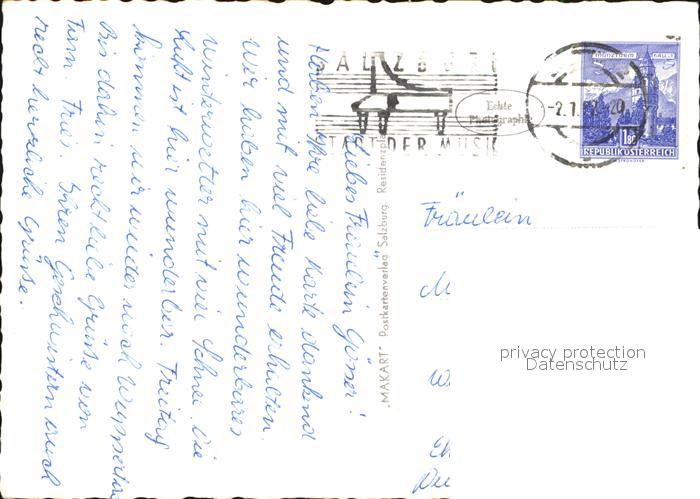 SALZBURG
STADT DER MUSIK
Echte
Photographie
-2.1.62-20
HALL i. T.
1.80
REPUBLIK ÖSTERREICH
Liebes Fräulein
Haben Ihre liebe Karte dankend
und mit viel Freude erhalten.
Wir haben hier wunderbares
Winterwetter mit viel Schnee. Die
Luft ist hier wunderbar. Freitag
kommen wir wieder nach
Bis dahin recht liebe Grüsse von
Ihren Geschwistern auch
recht herzliche Grüsse.
„MAKART" Postkartenverlag Salzburg, Residenzplatz
Fräulein
M
privacy protection
Datenschutz